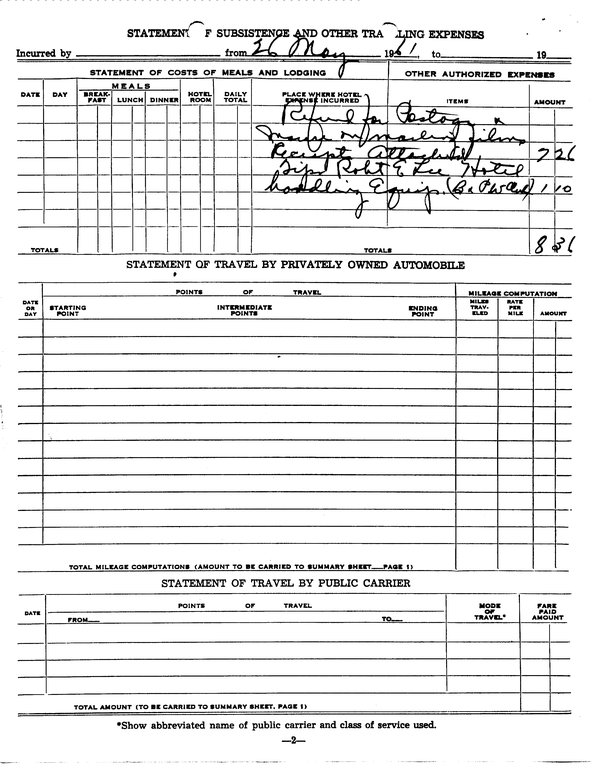 STATEMENT F SUBSISTENCE AND OTHER TRA LING EXPENSES
Incurred by from 26 May 1961, to 19
STATEMENT OF COSTS OF MEALS AND LODGING OTHER AUTHORIZED EXPENSES
DATE DAY MEALS BREAK-FAST LUNCH DINNER HOTEL ROOM DAILY TOTAL PLACE WHERE HOTEL EXPENSE INCURRED ITEMS AMOUNT
Refund for Postage &
on mailing films
Receipts Attached 7 26
Tips Robt E Lee Hotel
handling Equip. (B & PW Club) 1 10
TOTALS TOTALS 8 36
STATEMENT OF TRAVEL BY PRIVATELY OWNED AUTOMOBILE
POINTS OF TRAVEL MILEAGE COMPUTATION
DATE OR DAY STARTING POINT INTERMEDIATE POINTS ENDING POINT MILES TRAV-ELED RATE PER MILE AMOUNT
TOTAL MILEAGE COMPUTATIONS (AMOUNT TO BE CARRIED TO SUMMARY SHEET—PAGE 1)
STATEMENT OF TRAVEL BY PUBLIC CARRIER
DATE POINTS OF TRAVEL MODE OF TRAVEL* FARE PAID AMOUNT
FROM— TO—
TOTAL AMOUNT (TO BE CARRIED TO SUMMARY SHEET, PAGE 1)
*Show abbreviated name of public carrier and class of service used.
—2—